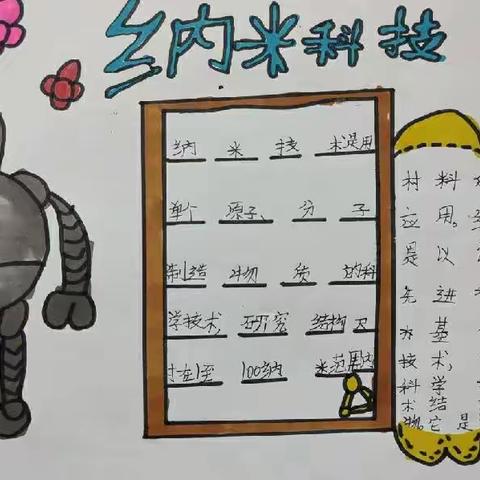 纳米科技
纳米技术是用
单个原子、分子
制造物质的科
学技术,研究结构尺
寸在1至100纳
米范围内
材料
应用。
是以
先进
为基
技术,
科学
术结
物。它是